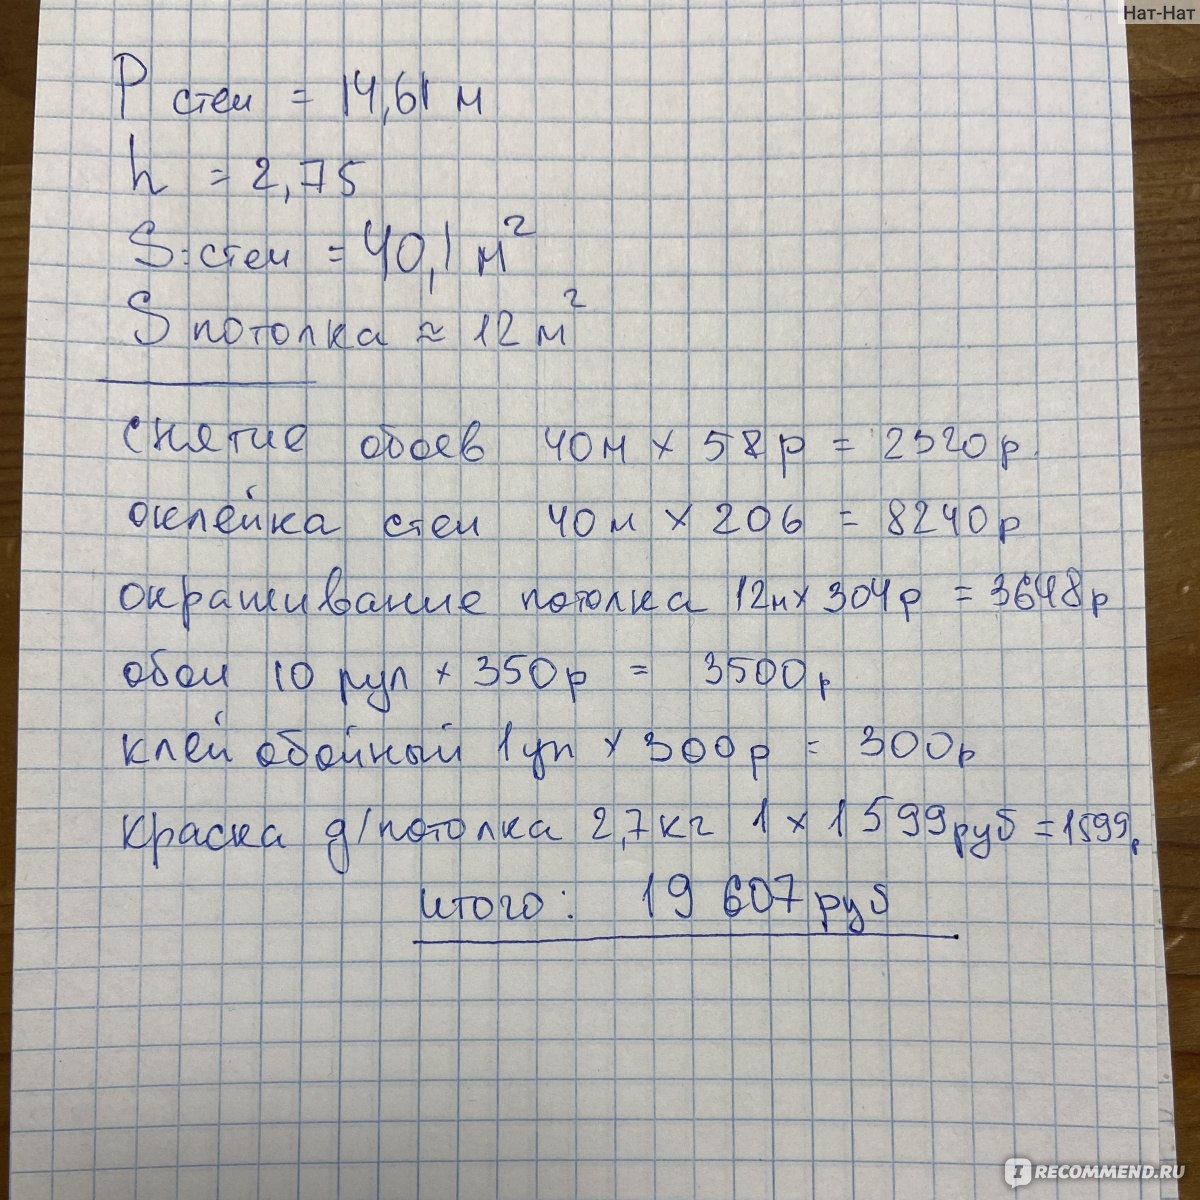 Нат-Нат
P стен = 14,61 м
h = 2,75
S:стен = 40,1 м²
S потолка ≈ 12 м²
снятие обоев 40м × 58р = 2320р.
оклейка стен 40м × 206 = 8240р
окрашивание потолка 12м × 304р = 3648р
обои 10 рул × 350р = 3500р
клей обойный 1уп × 300р = 300р
краска д/потолка 2,7кг 1 × 1599руб = 1599р
итого: 19 607 руб
IRECOMMEND.RU